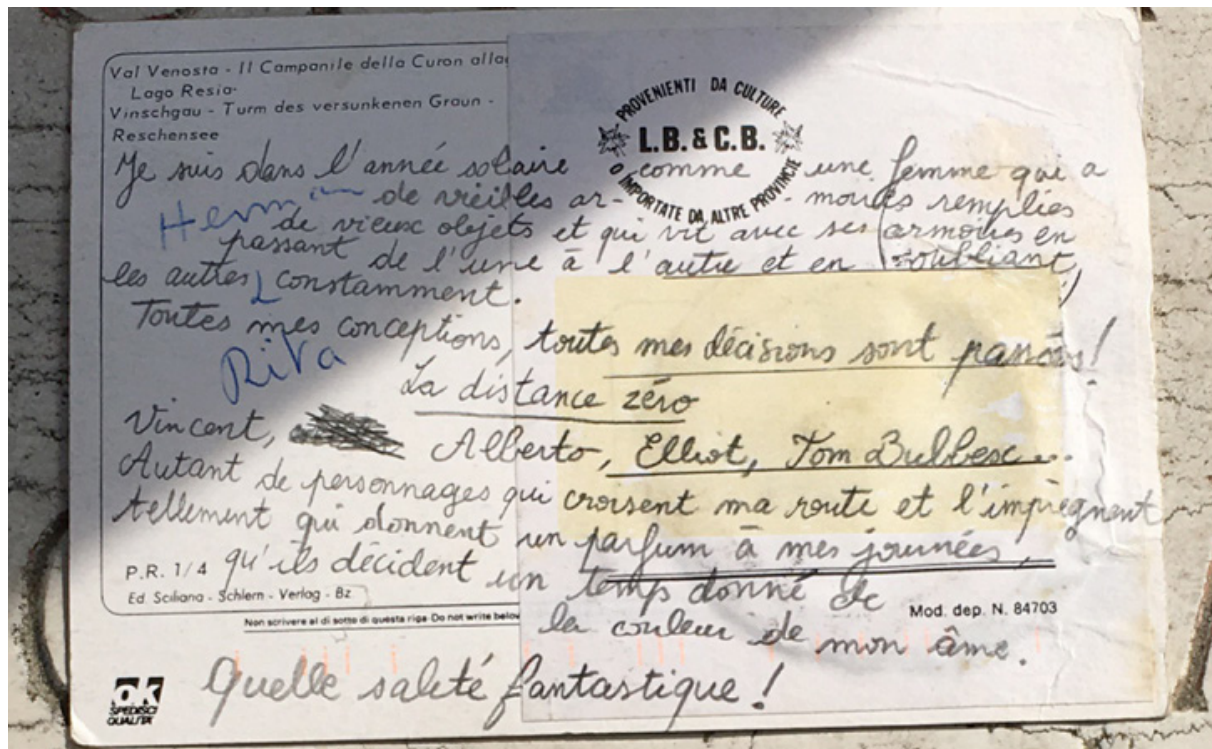 Val Venosta - Il Campanile della Curon alla
Lago Resia-
Vinschgau - Turm des versunkenen Graun -
Reschensee
PROVENIENTI DA CULTURE
L.B. & C.B.
O IMPORTATE DA ALTRE PROVINCIE
Je suis dans l'année solaire comme une femme qui a
de vieilles ar- moires remplies
de vieux objets et qui vit avec ses armoires en
passant de l'une à l'autre et en oubliant
les autres constamment.
Toutes mes conceptions, toutes mes décisions sont
Rita
La distance zéro
Vincent, Alberto, Elliot, Tom
Autant de personnages qui croisent ma route et l'imprègnent
tellement qui donnent un parfum à mes journées,
qu'ils décident un temps donné de
la couleur de mon âme.
P.R. 1/4
Ed. Sciliana - Schlern - Verlag - Bz
Mod. dep. N. 84703
Non scrivere al di sotto di questa riga-Do not write below
Quelle saleté fantastique !
ok
SPEDISCI
QUALITA'